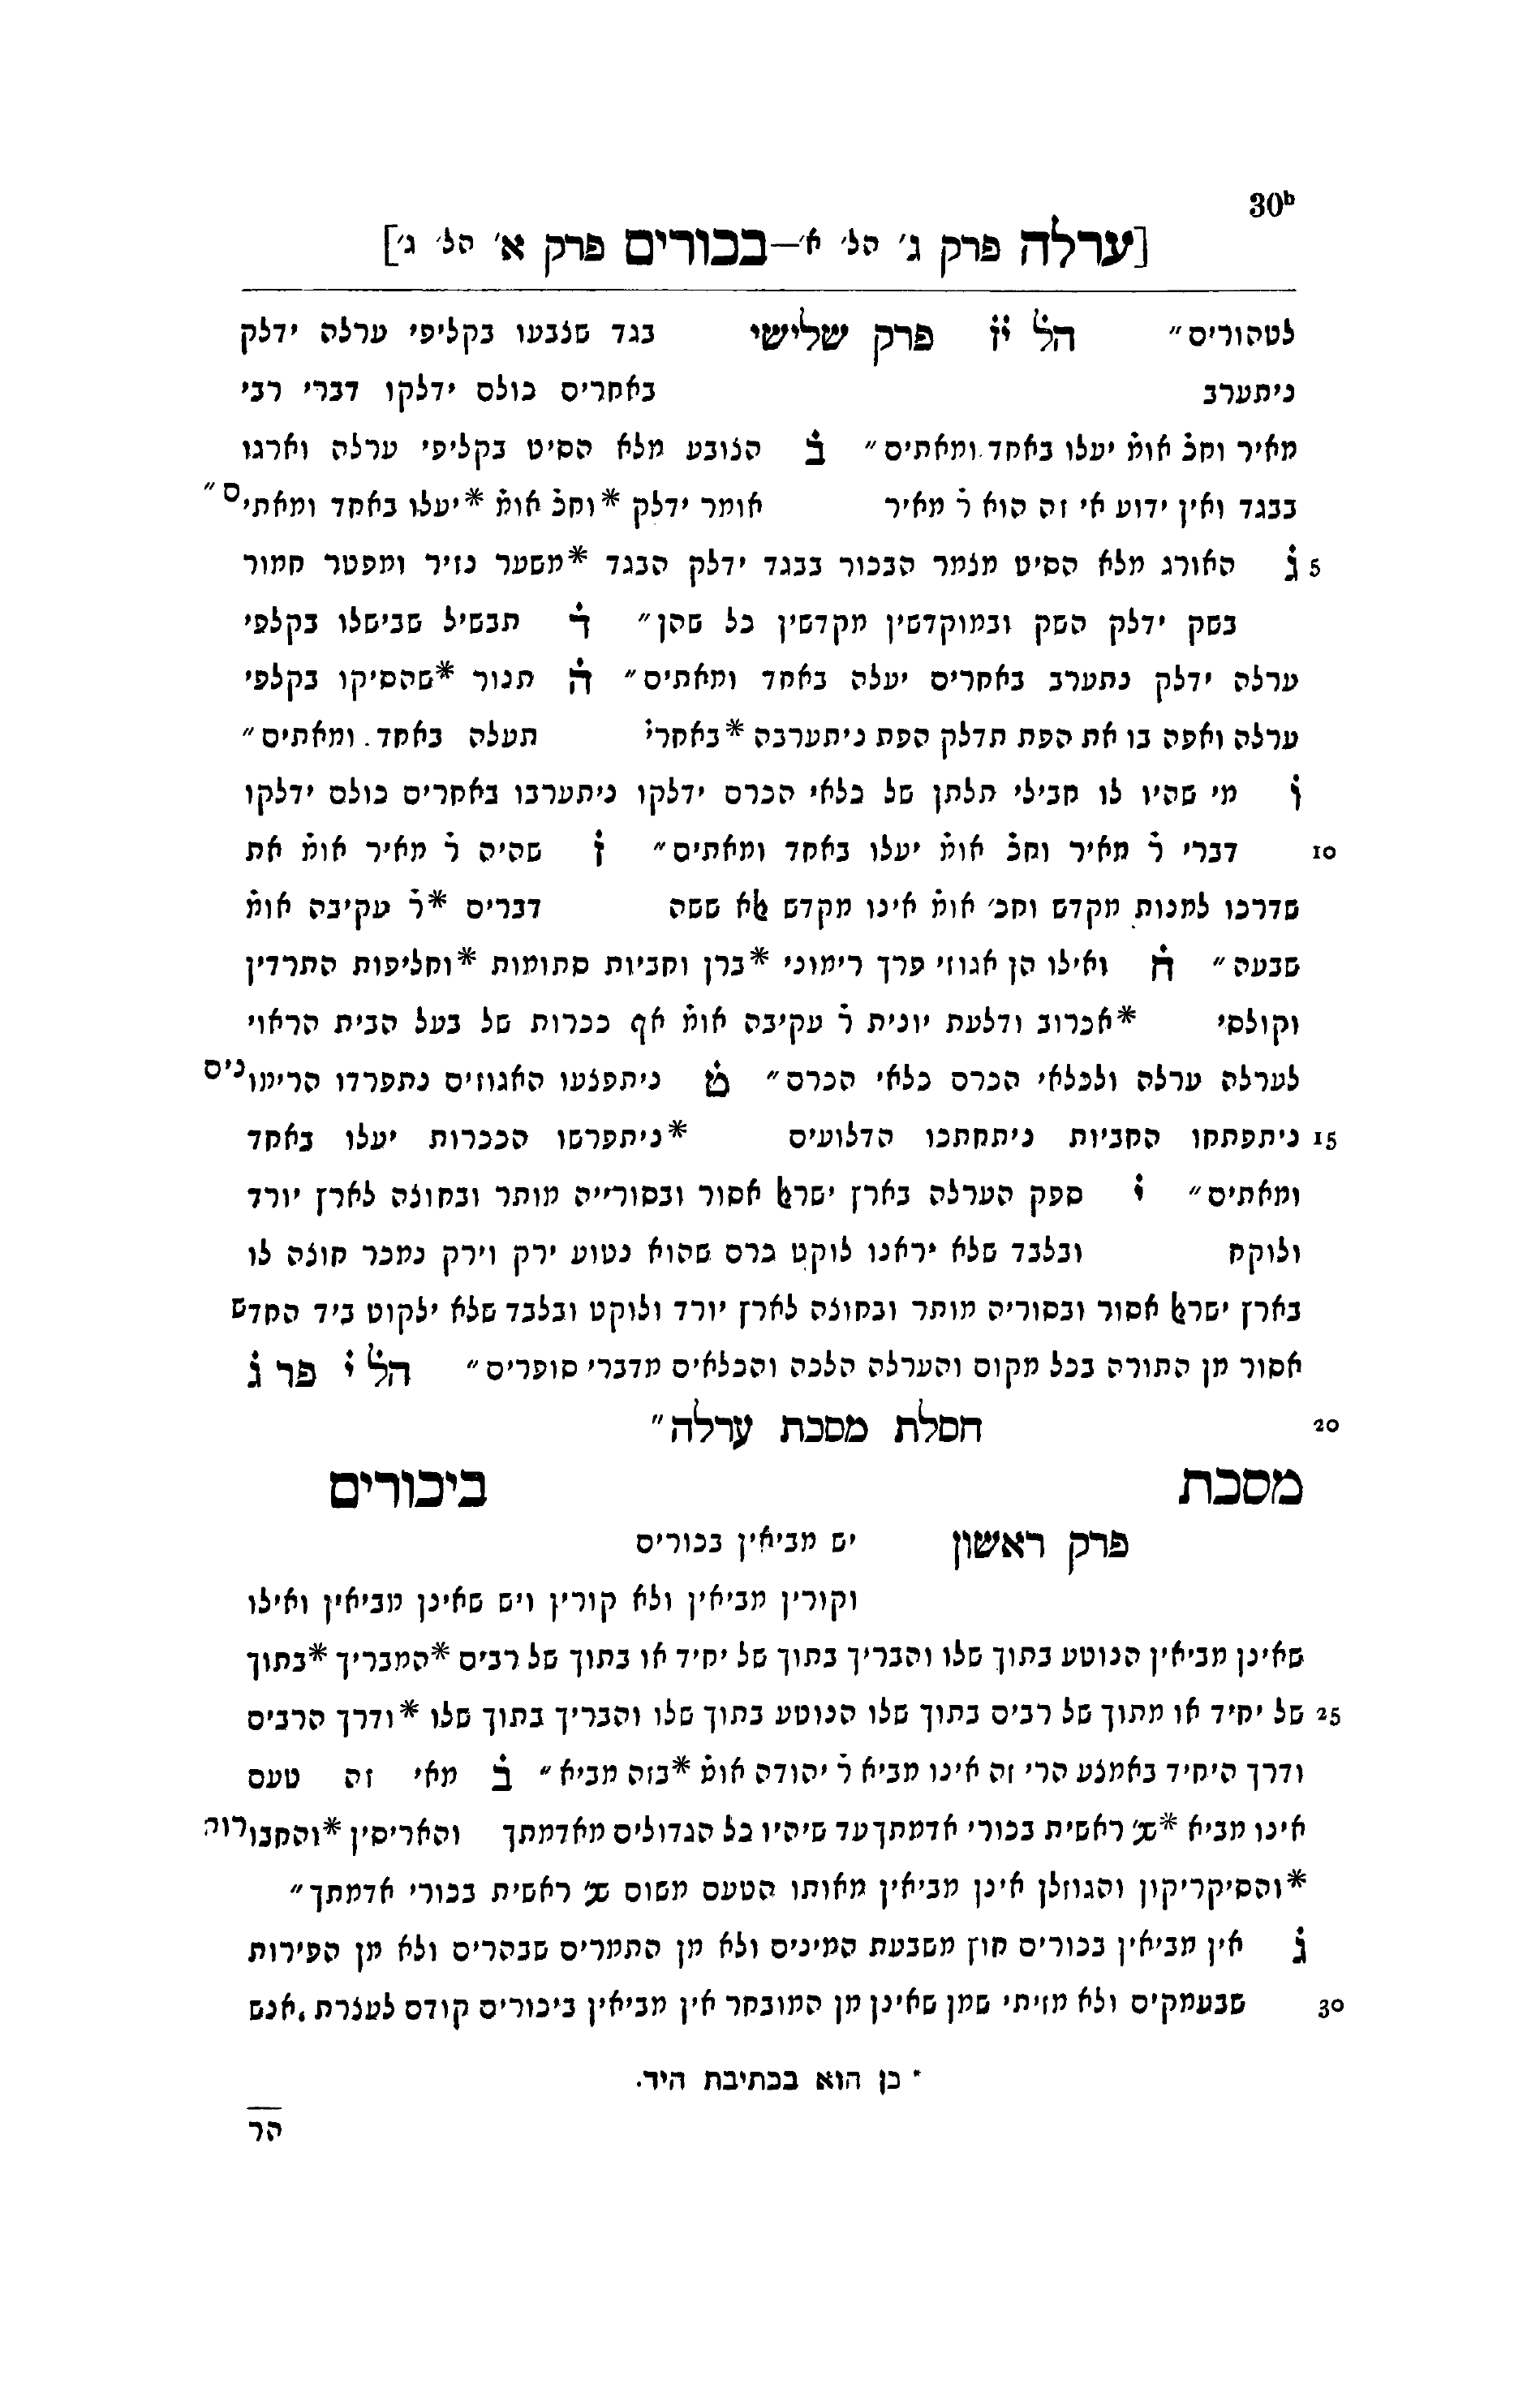 30b
[ערלה פרק ג׳ הל׳ א׳—בכורים פרק א׳ הל׳ ג׳]
לטהורים״ הל̇ י̇ז̇ פרק שלישי בגד שצבעו בקליפי ערלה ידלק
ניתערב באחרים כולם ידלקו דברי רבי
מאיר וחכ̇ אומ̇ יעלו באחד ומאתים״ ב̇ הצובע מלא הסיט בקליפי ערלה וארגו
בבגד ואין ידוע אי זה הוא ר̇ מאיר אומר ידלק *וחכ̇ אומ̇ *יעלו באחד ומאתים״
5 ג̇ האורג מלא הסיט מצמר הבכור בבגד ידלק הבגד *משער נזיר ומפטר חמור
בשק ידלק השק ובמוקדשין מקדשין כל שהן״ ד̇ תבשיל שבישלו בקלפי
ערלה ידלק נתערב באחרים יעלה באחד ומאתים״ ה̇ תנור *שהסיקו בקלפי
ערלה ואפה בו את הפת תדלק הפת ניתערבה *באחרי̇ תעלה באחד. ומאתים״
ו̇ מי שהיו לו חבילי תלתן של כלאי הכרם ידלקו ניתערבו באחרים כולם ידלקו
10 דברי ר̇ מאיר וחכ̇ אומ̇ יעלו באחד ומאתים״ ז̇ שהיה ר̇ מאיר אומ̇ את
שדרכו למנות מקדש וחכ׳ אומ̇ אינו מקדש אלא ששה דברים *ר̇ עקיבה אומ̇
שבעה״ ח̇ ואילו הן אגוזי פרך רימוני *ברן וחביות סתומות *וחליפות התרדין
וקולסי *אכרוב ודלעת יונית ר̇ עקיבה אומ̇ אף ככרות של בעל הבית הראוי
לערלה ערלה ולכלאי הכרם כלאי הכרם״ ט̇ ניתפצעו האגוזים נתפרדו הרימונים
15 ניתפתחו החביות ניתחתכו הדלועים *ניתפרשו הככרות יעלו באחד
ומאתים״ י̇ ספק הערלה בארץ ישראל אסור ובסורייה מותר ובחוצה לארץ יורד
ולוקח ובלבד שלא יראנו לוקט כרם שהוא נטוע ירק וירק נמכר חוצה לו
בארץ ישראל אסור ובסוריה מותר ובחוצה לארץ יורד ולוקט ובלבד שלא ילקוט ביד החדש
אסור מן התורה בכל מקום והערלה הלכה והכלאים מדברי סופרים״ הל̇ י̇ פר ג̇
20 חסלת מסכת ערלה״
מסכת ביכורים
פרק ראשון יש מביאין בכורים
וקורין מביאין ולא קורין ויש שאינן מביאין ואילו
שאינן מביאין הנוטע בתוך שלו והבריך בתוך של יחיד או בתוך של רבים *המבריך *בתוך
25 של יחיד או מתוך של רבים בתוך שלו הנוטע בתוך שלו והבריך בתוך שלו *ודרך הרבים
ודרך היחיד באמצע הרי זה אינו מביא ר̇ יהודה אומ̇ *בזה מביא״ ב̇ מאי זה טעם
אינו מביא *שנ׳ ראשית בכורי אדמתך עד שיהיו כל הגדולים מאדמתך והאריסין *והחבורות
*והסיקריקון והגוזלן אינן מביאין מאותו הטעם משום שנ׳ ראשית בכורי אדמתך״
ג̇ אין מביאין בכורים חוץ משבעת המינים ולא מן התמרים שבהרים ולא מן הפירות
30 שבעמקים ולא מזיתי שמן שאינן מן המובחר אין מביאין ביכורים קודם לעצרת .אנש
* כן הוא בכתיבת היד.
הר